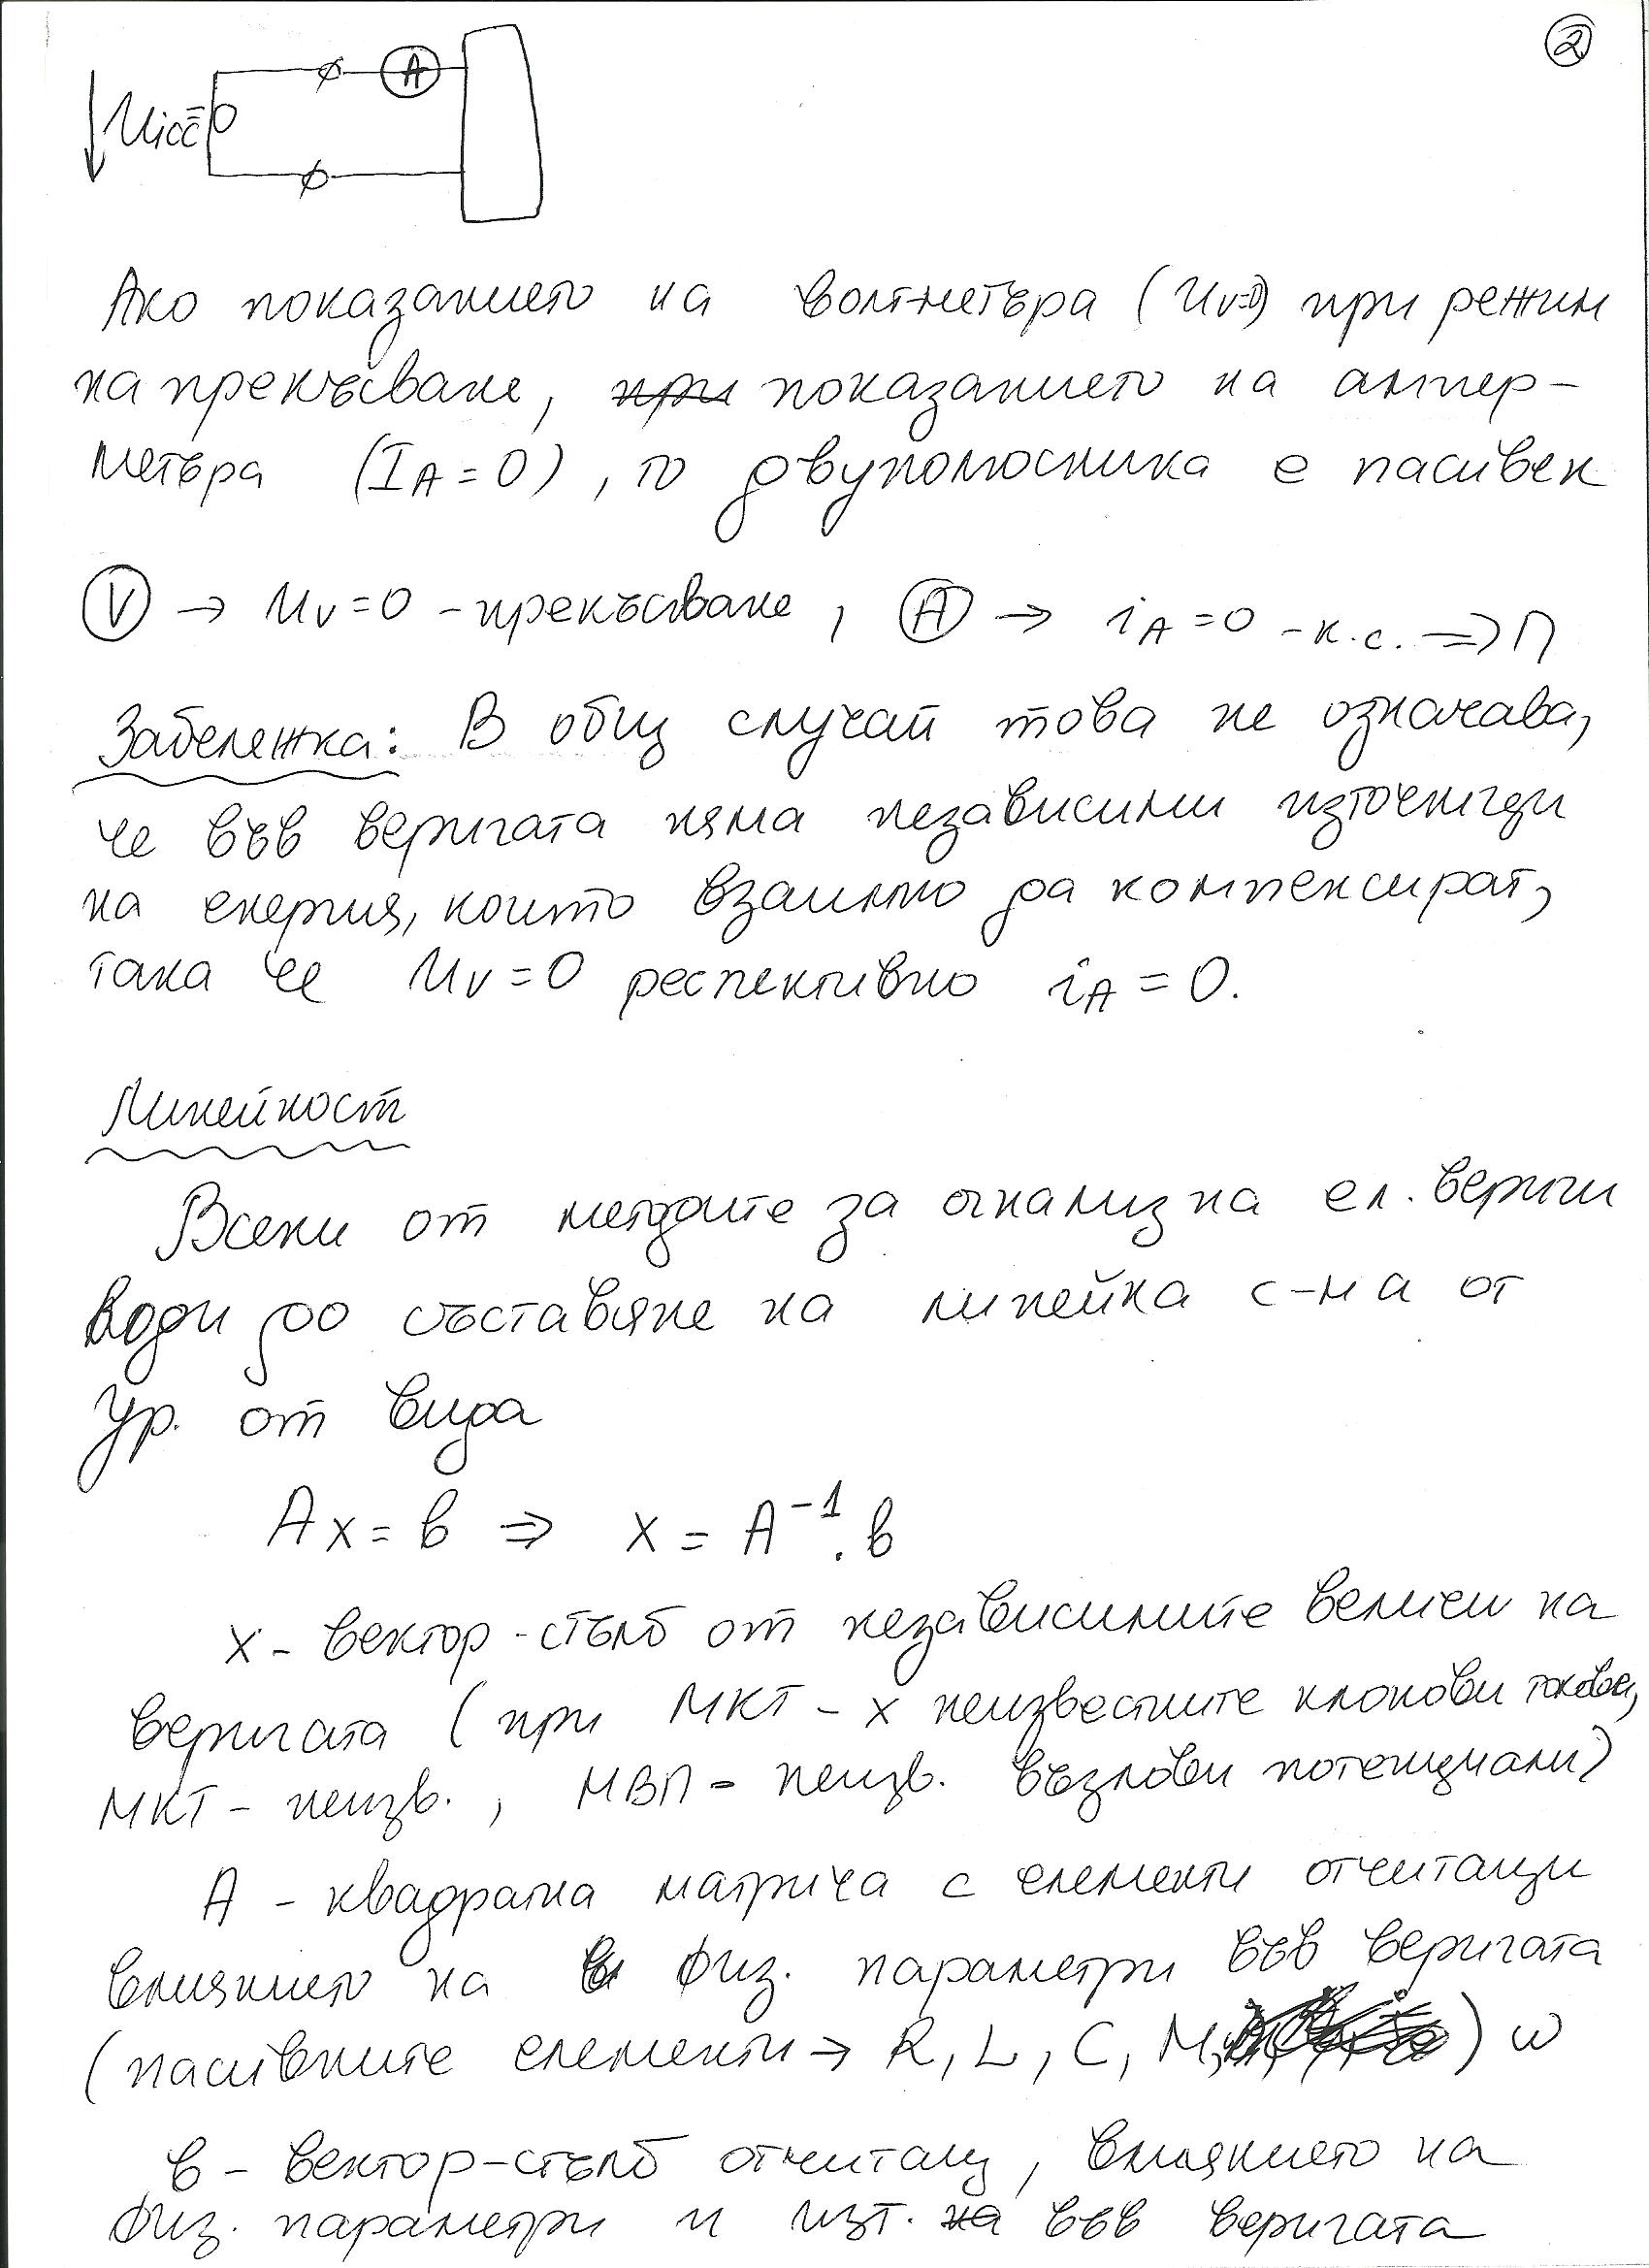 2
Uкс=0
A
Ако показанието на волтметъра (Uv=0) при режим
на прекъсване, при показанието на ампер-
метъра (IA=0), то двуполюсника е пасивен
V → Uv=0 - прекъсване, A → iA=0 - к.с. => П
Забележка: В общ случай това не означава,
че във веригата няма независими източници
на енергия, които взаимно да компенсират,
така че Uv=0 респективно iA=0.
Линейност
Всеки от методите за анализ на ел. вериги
води до съставяне на линейна с-ма от
ур. от вида
Ax=в ⇒ x = A⁻¹.в
x - вектор-стълб от независимите величи на
веригата (при МКТ - x неизвестните клонови токове,
МКТ - неизв. , МВП - неизв. възлови потенциали)
A - квадратна матрица с елементи отчитащи
влиянието на физ. параметри във веригата
(пасивните елементи → R, L, C, M, ) ω
в - вектор-стълб отчитащ, влиянието на
физ. параметри и изт. на във веригата